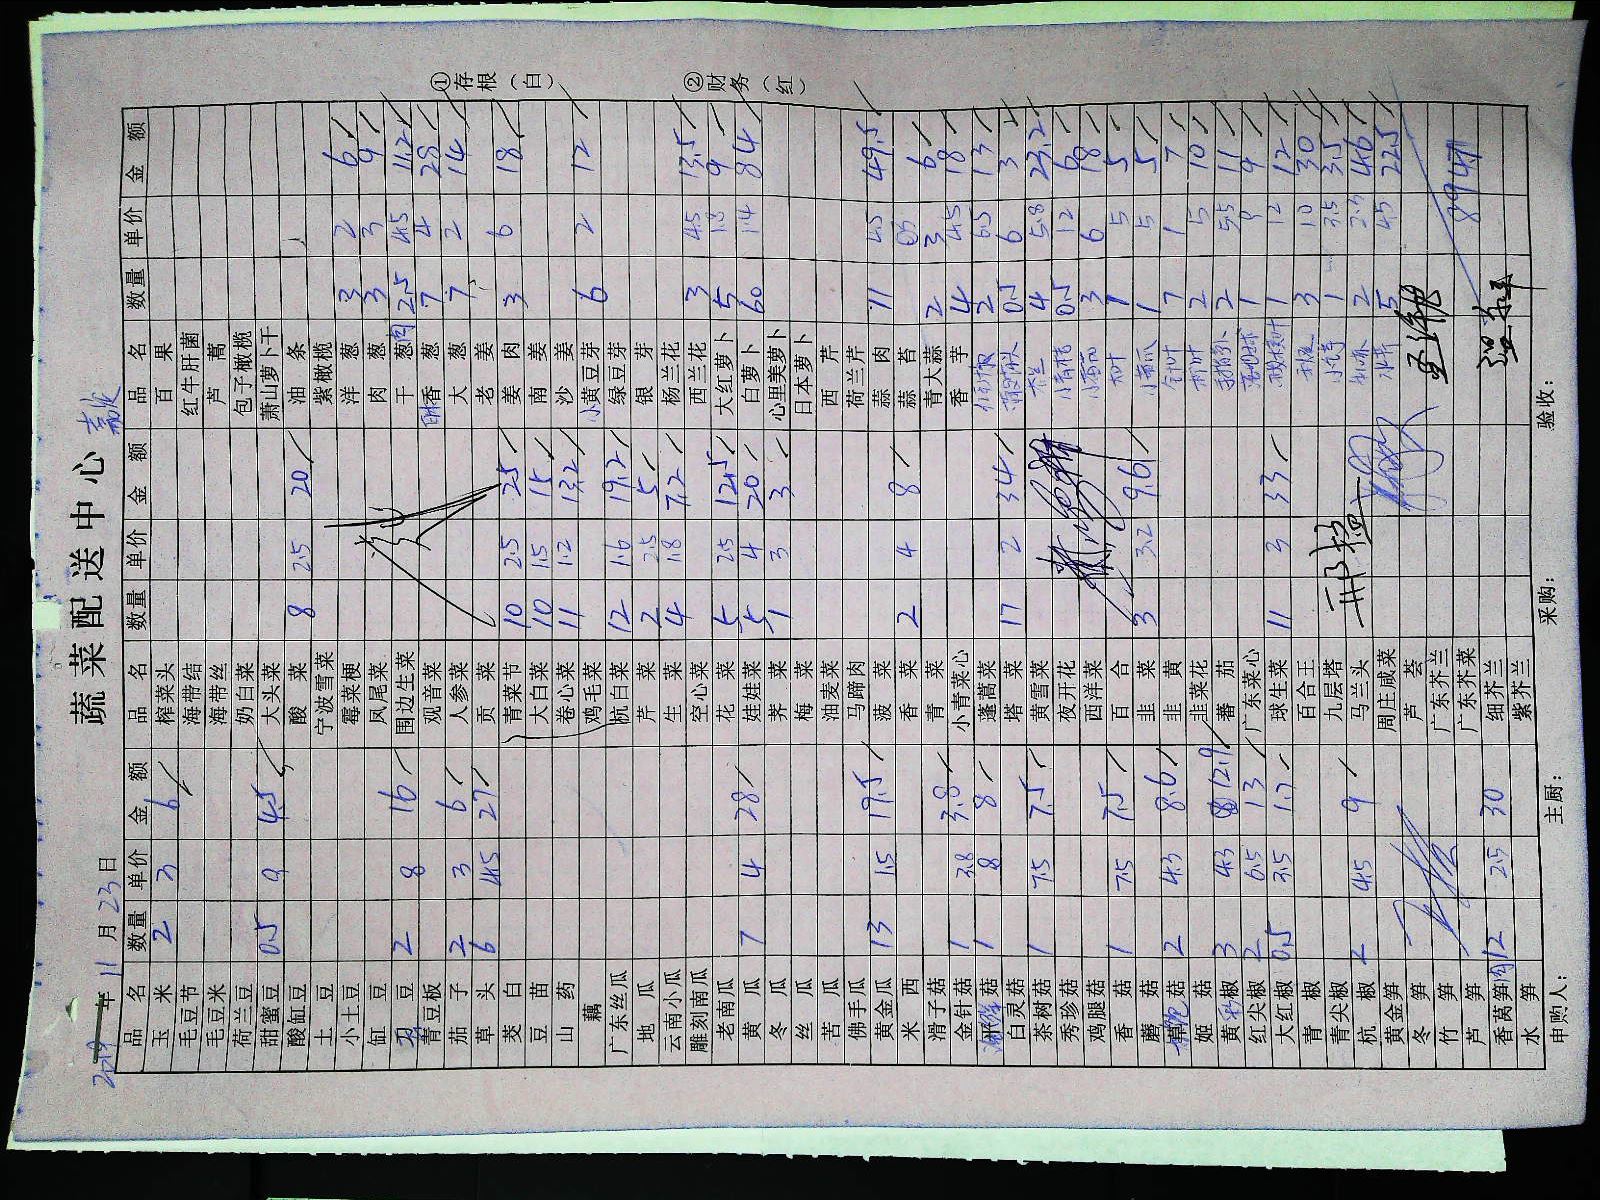 蔬菜配送中心
11月23日
品名 数量 单价 金额 品名 数量 单价 金额 品名 数量 单价 金额
玉米 2 3 6 榨菜头 百果
毛豆节 海带结 红牛肝菌
毛豆米 海带丝 芦蒿
荷兰豆 奶白菜 包子橄榄
甜蜜豆 0.5 9 4.5 大头菜 萧山萝卜干
酸缸豆 酸菜 8 2.5 20 油条
土豆 宁波雪菜 紫橄榄
小土豆 霉菜梗 洋葱 3 2 6
缸豆 凤尾菜 肉葱 3 3 9
豆 2 8 16 围边生菜 干葱肉 2.5 4.5 11.2
青豆板 观音菜 香葱 7 4 28
茄子 2 3 6 人参菜 大葱 7 2 14
草头 6 4.5 27 贡菜 老姜
茭白 青菜节 10 2.5 25 姜肉 3 6 18
豆苗 大白菜 10 1.5 15 南姜
山药 卷心菜 11 1.2 13.2 沙姜
藕 鸡毛菜 小黄豆芽 6 2 12
广东丝瓜 杭白菜 12 1.6 19.2 绿豆芽
地瓜 芹菜 2 2.5 5 银芽
云南小瓜 生菜 4 1.8 7.2 杨兰花
雕刻南瓜 空心菜 西兰花 3 4.5 13.5
老南瓜 花菜 5 2.5 12.5 大红萝卜 5 1.8 9
黄瓜 7 4 28 娃娃菜 5 4 20 白萝卜 60 1.4 84
冬瓜 荠菜 1 3 3 心里美萝卜
丝瓜 梅菜 日本萝卜
苦瓜 油麦菜 西芹
佛手瓜 马蹄肉 荷兰芹
黄金瓜 13 1.5 19.5 菠菜 蒜肉 11 4.5 49.5
米西 香菜 2 4 8 蒜苔
滑子菇 青菜 青大蒜 2 3 6
金针菇 1 3.8 3.8 小青菜心 香芋 4 4.5 18
菇 1 8 8 蓬蒿菜 2 6.5 13
白灵菇 塔菜 17 2 34 0.5 6 3
茶树菇 1 7.5 7.5 黄雪菜 4 5.8 23.2
秀珍菇 夜开花 0.5 12 6
鸡腿菇 西洋菜 3 6 18
香菇 1 7.5 7.5 百合 1 5 5
蘑菇 韭菜 3 3.2 9.6 1 5 5
菇 2 4.3 8.6 韭黄 7 1 7
姬菇 韭菜花 2 5 10
黄彩椒 3 4.3 12.9 蕃茄 2 5.5 11
红尖椒 2 6.5 13 广东菜心 1 9 9
大红椒 0.5 3.5 1.7 球生菜 11 3 33 1 12 12
青椒 百合王 3 10 30
青尖椒 九层塔 1 3.5 3.5
杭椒 2 4.5 9 马兰头 2 2.3 4.6
黄金笋 周庄咸菜 5 4.5 22.5
冬笋 芦荟
竹笋 广东芥兰
芦笋 广东芥菜
香莴笋肉 12 2.5 30 细芥兰
水笋 紫芥兰
申购人: 主厨: 采购: 验收:
①存根（白）
②财务（红）